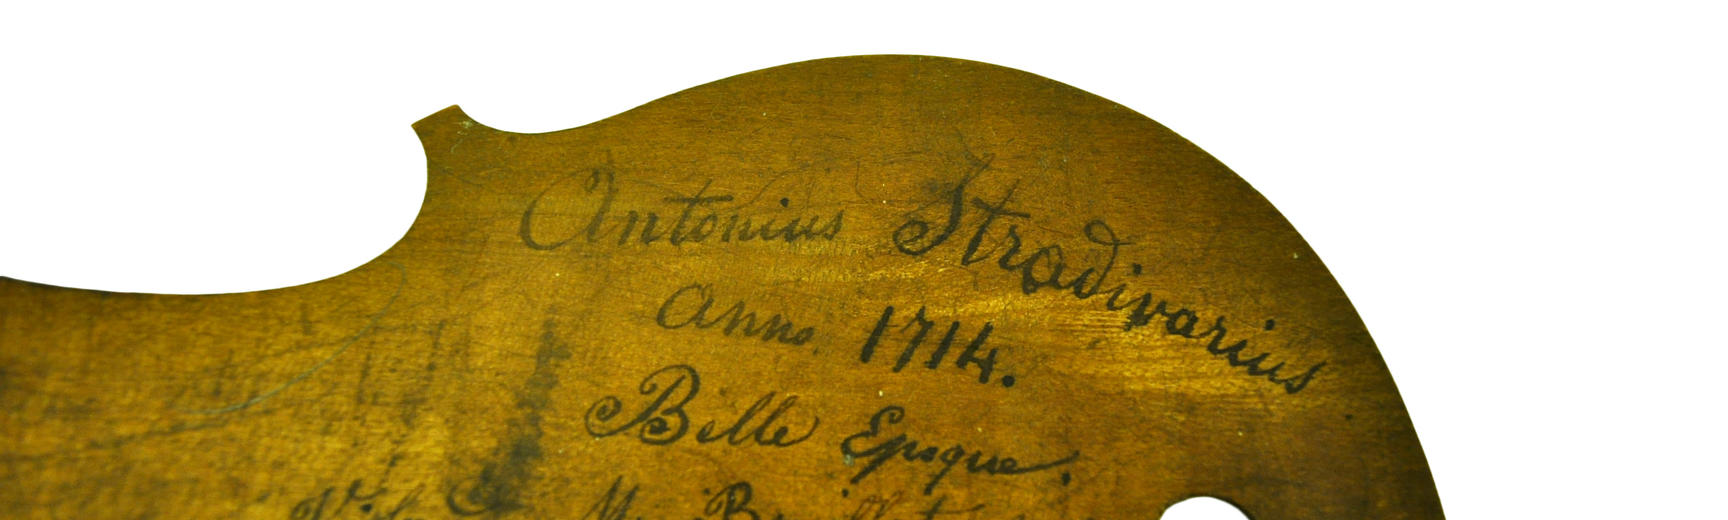 Antonius Stradivarius
Anno 1714.
Belle Epoque.